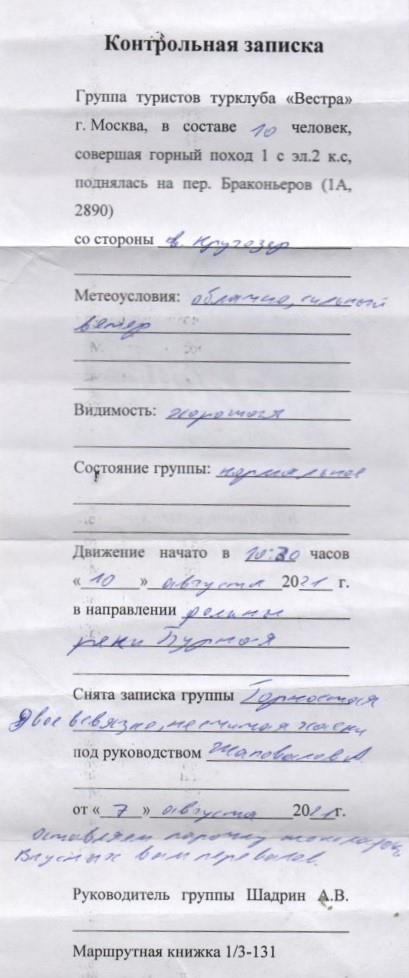 Контрольная записка
Группа туристов турклуба «Вестра»
г. Москва, в составе 10 человек,
совершая горный поход 1 с эл.2 к.с,
поднялась на пер. Браконьеров (1А,
2890)
со стороны в. Кругозор
Метеоусловия: облачно, сильный
ветер
Видимость: хорошая
Состояние группы: нормальное
Движение начато в 10:30 часов
«10» августа 2021 г.
в направлении долины
реки Бурная
Снята записка группы
Двое в связке, не считая
под руководством Шаповалов А
от «7» августа 2021г.
оставляем
Вкусных вам перевалов.
Руководитель группы Шадрин А.В.
Маршрутная книжка 1/3-131